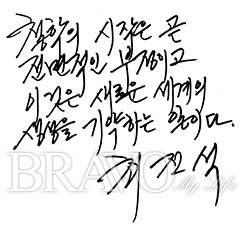 철학의 시작은 곧
전면적인 부정이고
이것은 새로운 세계의
생성을 기약하는 힘이다.
최진석
BRAVO
My Life